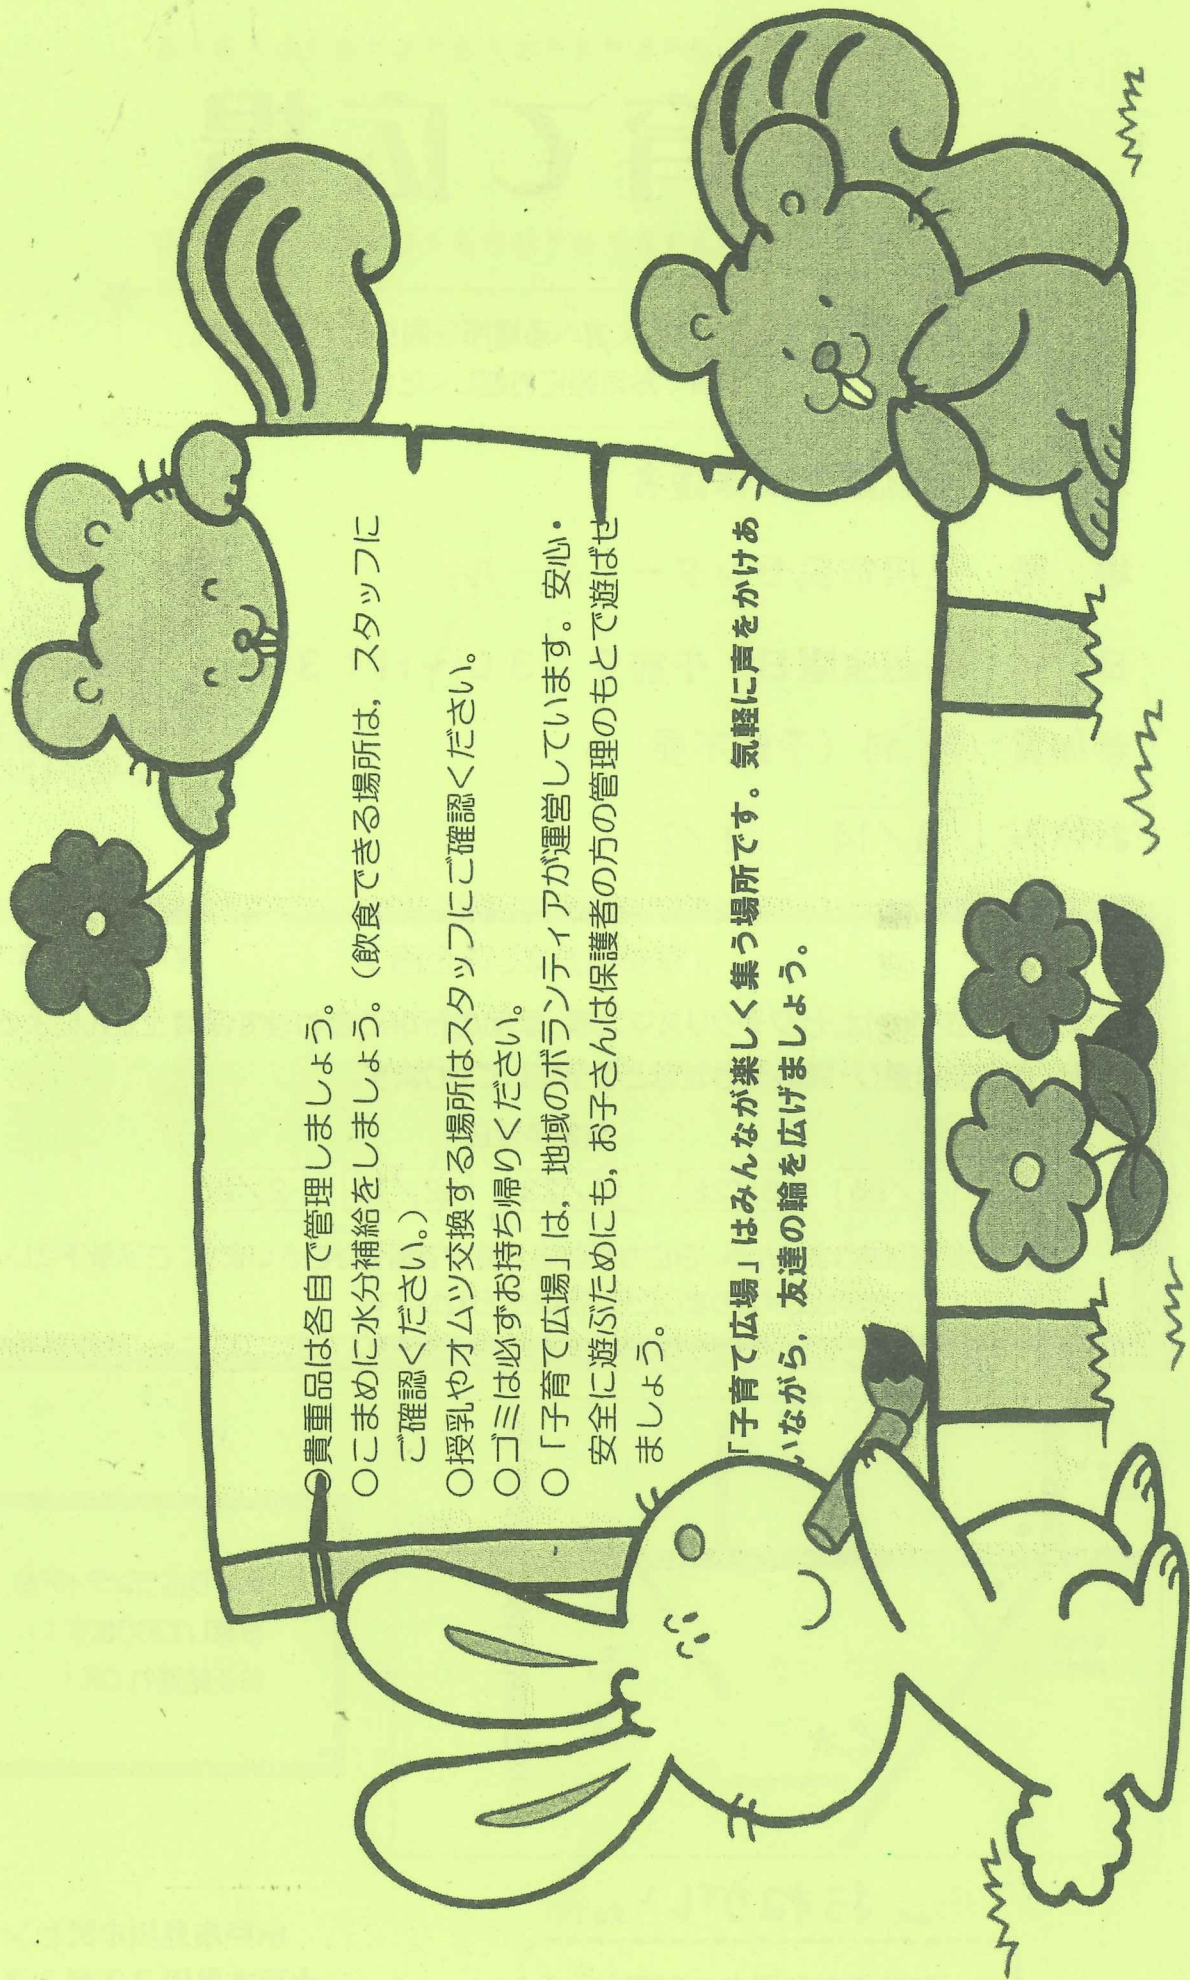 ○貴重品は各自で管理しましょう。
○こまめに水分補給をしましょう。（飲食できる場所は，スタッフに
ご確認ください。）
○授乳やオムツ交換する場所はスタッフにご確認ください。
○ゴミは必ずお持ち帰りください。
○「子育て広場」は，地域のボランティアが運営しています。安心・
安全に遊ぶためにも，お子さんは保護者の方の管理のもとで遊ばせ
ましょう。
「子育て広場」はみんなが楽しく集う場所です。気軽に声をかけあ
いながら，友達の輪を広げましょう。